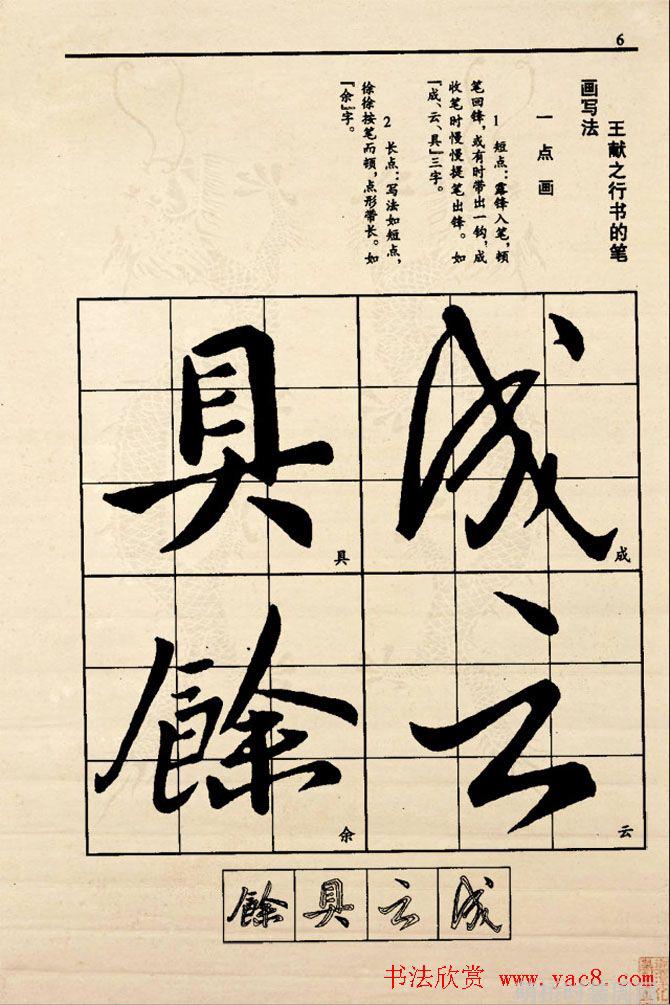 6
王献之行书的笔
画写法
一点画
1 短点：露锋入笔，顿
笔回锋，或有时带出一钩，成
收笔时慢慢提笔出锋。如
「成、云、具」三字。
2 长点：写法如短点，
徐徐按笔而顿，点形带长。如
「余」字。
成
成
云
云
具
具
餘
余
成
云
具
餘
书法欣赏 www.yac8.com